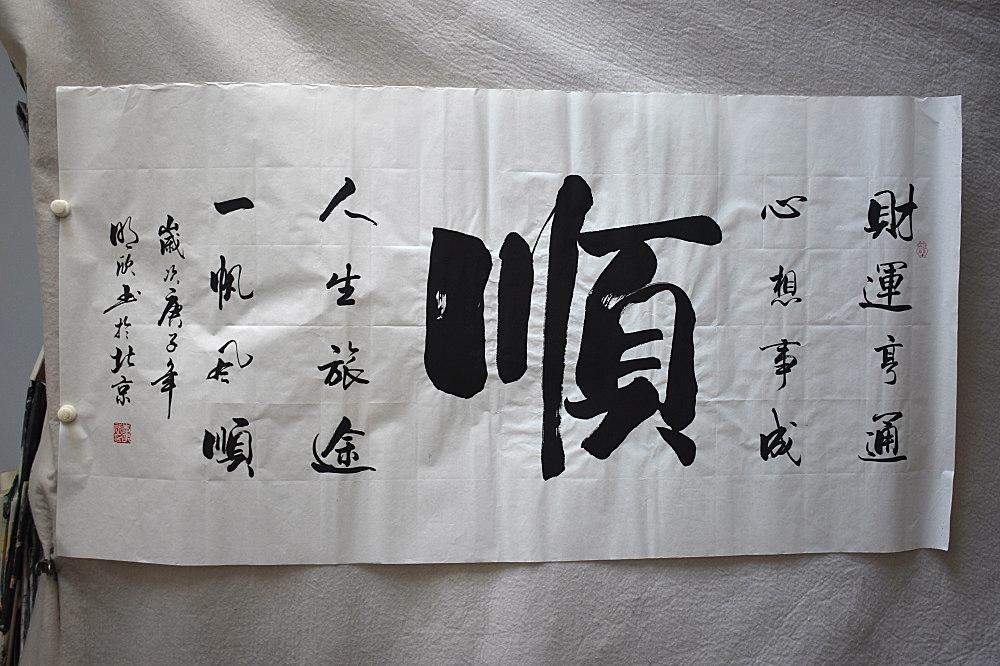 財運亨通
心想事成
順
人生旅途
一帆风順
歲次庚子年
明欣书於北京